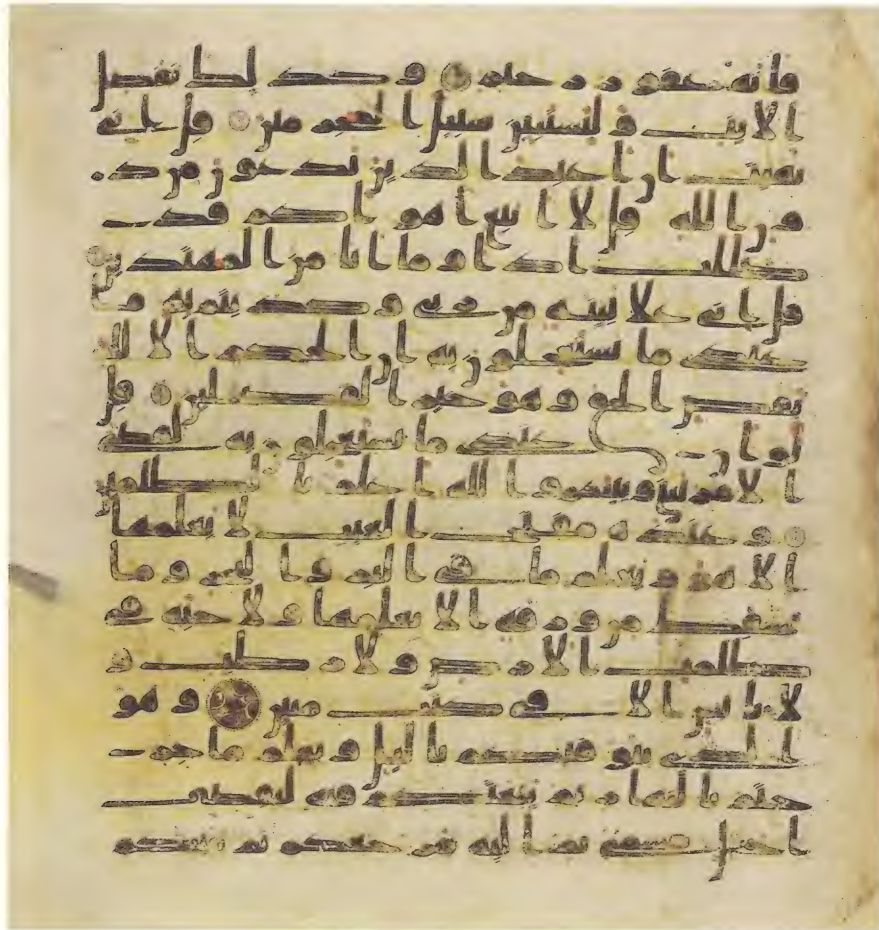 فانه غفور رحيم وكذلك نفصل
الايت ولتستبين سبيل المجرمين قل اني
نهيت ان اعبد الذين تدعون من د
ون الله قل لا اتبع اهواكم قد
ضللت اذا وما انا من المهتدين
قل اني على بينه من ربي وكذبتم به ما
عندي ما تستعجلون به ان الحكم الا لله
يقص الحق وهو خير الفصلين قل
لو ان عندي ما تستعجلون به لقضي
الامر بيني وبينكم والله اعلم بالظلمين
وعنده مفتح الغيب لا يعلمها
الا هو ويعلم ما في البر والبحر وما
تسقط من ورقه الا يعلمها ولا حبه في
ظلمت الارض ولا رطب و
لا يابس الا في كتب مبين وهو
الذي يتوفيكم باليل ويعلم ما جر
حتم بالنهار ثم يبعثكم فيه ليقضى
اجل مسمى ثم اليه مرجعكم ثم ينبئكم